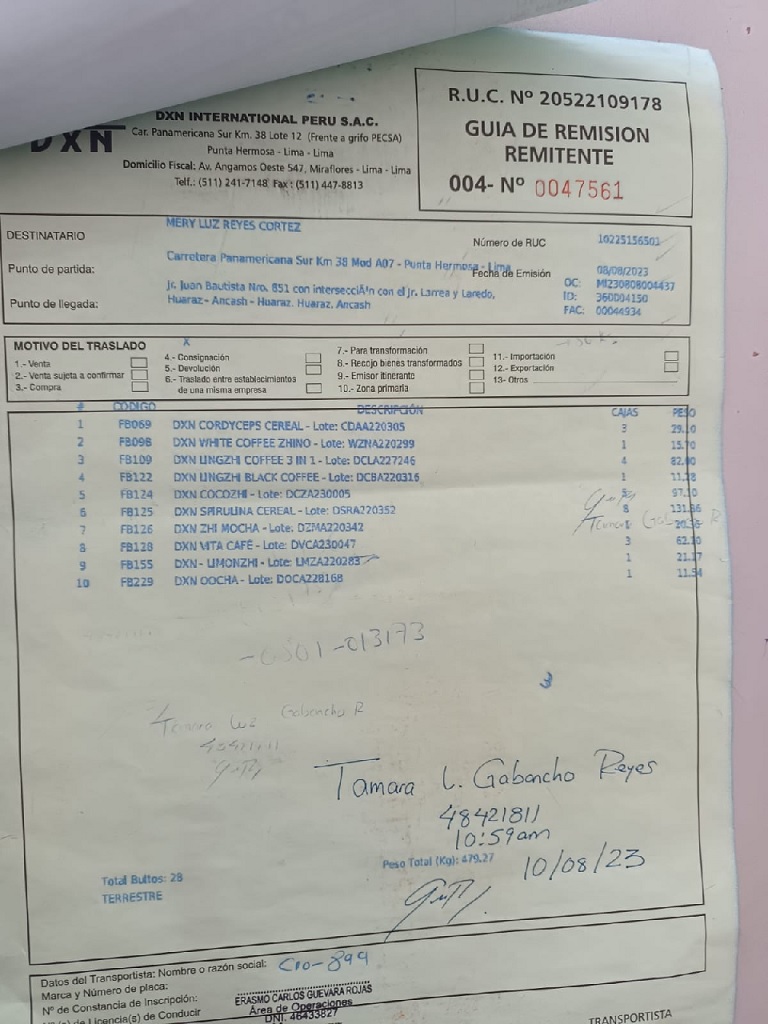 DXN
DXN INTERNATIONAL PERU S.A.C.
Car. Panamericana Sur Km. 38 Lote 12 (Frente a grifo PECSA)
Punta Hermosa - Lima - Lima
Domicilio Fiscal: Av. Angamos Oeste 547, Miraflores - Lima - Lima
Telf.: (511) 241-7148 Fax : (511) 447-8813
R.U.C. Nº 20522109178
GUIA DE REMISION
REMITENTE
004- Nº 0047561
DESTINATARIO MERY LUZ REYES CORTEZ Número de RUC 10225156501
Punto de partida: Carretera Panamericana Sur Km 38 Mod A07 - Punta Hermosa - Lima Fecha de Emisión 08/08/2023
Punto de llegada: Jr. Juan Bautista Nro. 851 con intersecciÃ³n con el Jr. Larrea y Laredo,
Huaraz- Ancash - Huaraz. Huaraz. Ancash
OC: MI230808004437
ID: 360004150
FAC: 00044934
MOTIVO DEL TRASLADO X
1.- Venta
2.- Venta sujeta a confirmar
3.- Compra
4.- Consignación
5.- Devolución
6.- Traslado entre establecimientos
de una misma empresa
7.- Para transformación
8.- Recojo bienes transformados
9.- Emisor itinerante
10.- Zona primaria
11.- Importación
12.- Exportación
13- Otros
# CODIGO DESCRIPCIÓN CAJAS PESO
1 FB069 DXN CORDYCEPS CEREAL - Lote: CDAA220305 3 29.10
2 FB098 DXN WHITE COFFEE ZHINO - Lote: WZNA220299 1 15.70
3 FB109 DXN LINGZHI COFFEE 3 IN 1 - Lote: DCLA227246 4
4 FB122 DXN LINGZHI BLACK COFFEE - Lote: DCBA220316 1
5 FB124 DXN COCOZHI - Lote: DCZA230005 97.10
6 FB125 DXN SPIRULINA CEREAL - Lote: DSRA220352 8
7 FB126 DXN ZHI MOCHA - Lote: DZMA220342
8 FB128 DXN VITA CAFÉ - Lote: DVCA230047 3
9 FB155 DXN - LIMONZHI - Lote: LMZA220283 1
10 FB229 DXN OOCHA - Lote: DOCA228168 1
-013173
3
Tamara Luz Gabancho R
Tamara L. Gabancho Reyes
48421811
10:59am
Peso Total (Kg): 479.27
10/08/23
Total Bultos: 28
TERRESTRE
Datos del Transportista: Nombre o razón social:
Marca y Número de placa:
Nº de Constancia de Inscripción:
Licencia(s) de Conducir
ERASMO CARLOS GUEVARA ROJAS
Área de Operaciones
DNI. 46433827
TRANSPORTISTA